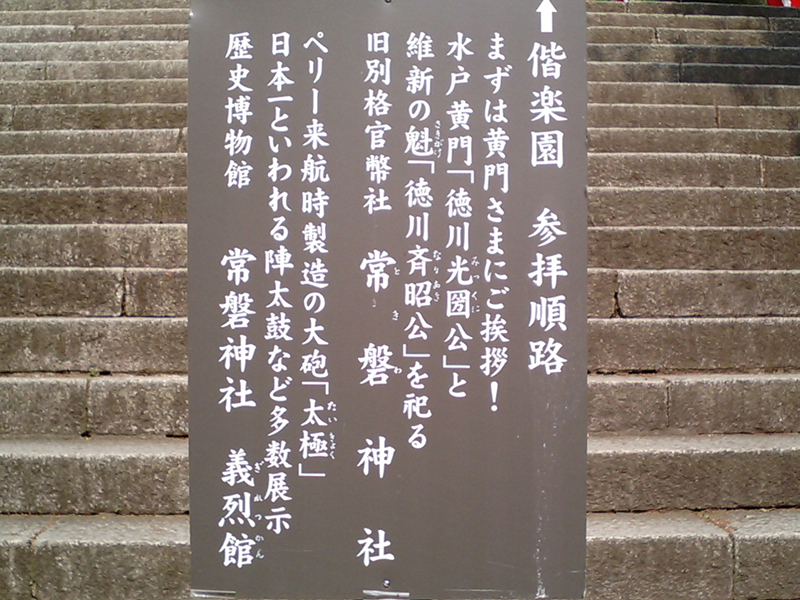 ↑偕楽園 参拝順路
まずは黄門さまにご挨拶!
水戸黄門「徳川光圀公」と
維新の魁「徳川斉昭公」を祀る
旧別格官幣社 常磐神社
ペリー来航時製造の大砲「太極」
日本一といわれる陣太鼓など多数展示
歴史博物館 常磐神社 義烈館